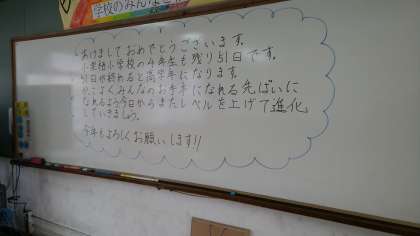 学校のみんな
あけましておめでとうございます。
小学校の4年生も残り51日です。
51日が終わると高学年になります。
かっこよくみんなのお手本になれる先ぱいに
なれるよう今日からまたレベルを上げて進化
していきましょう。
今年もよろしくお願いします!!